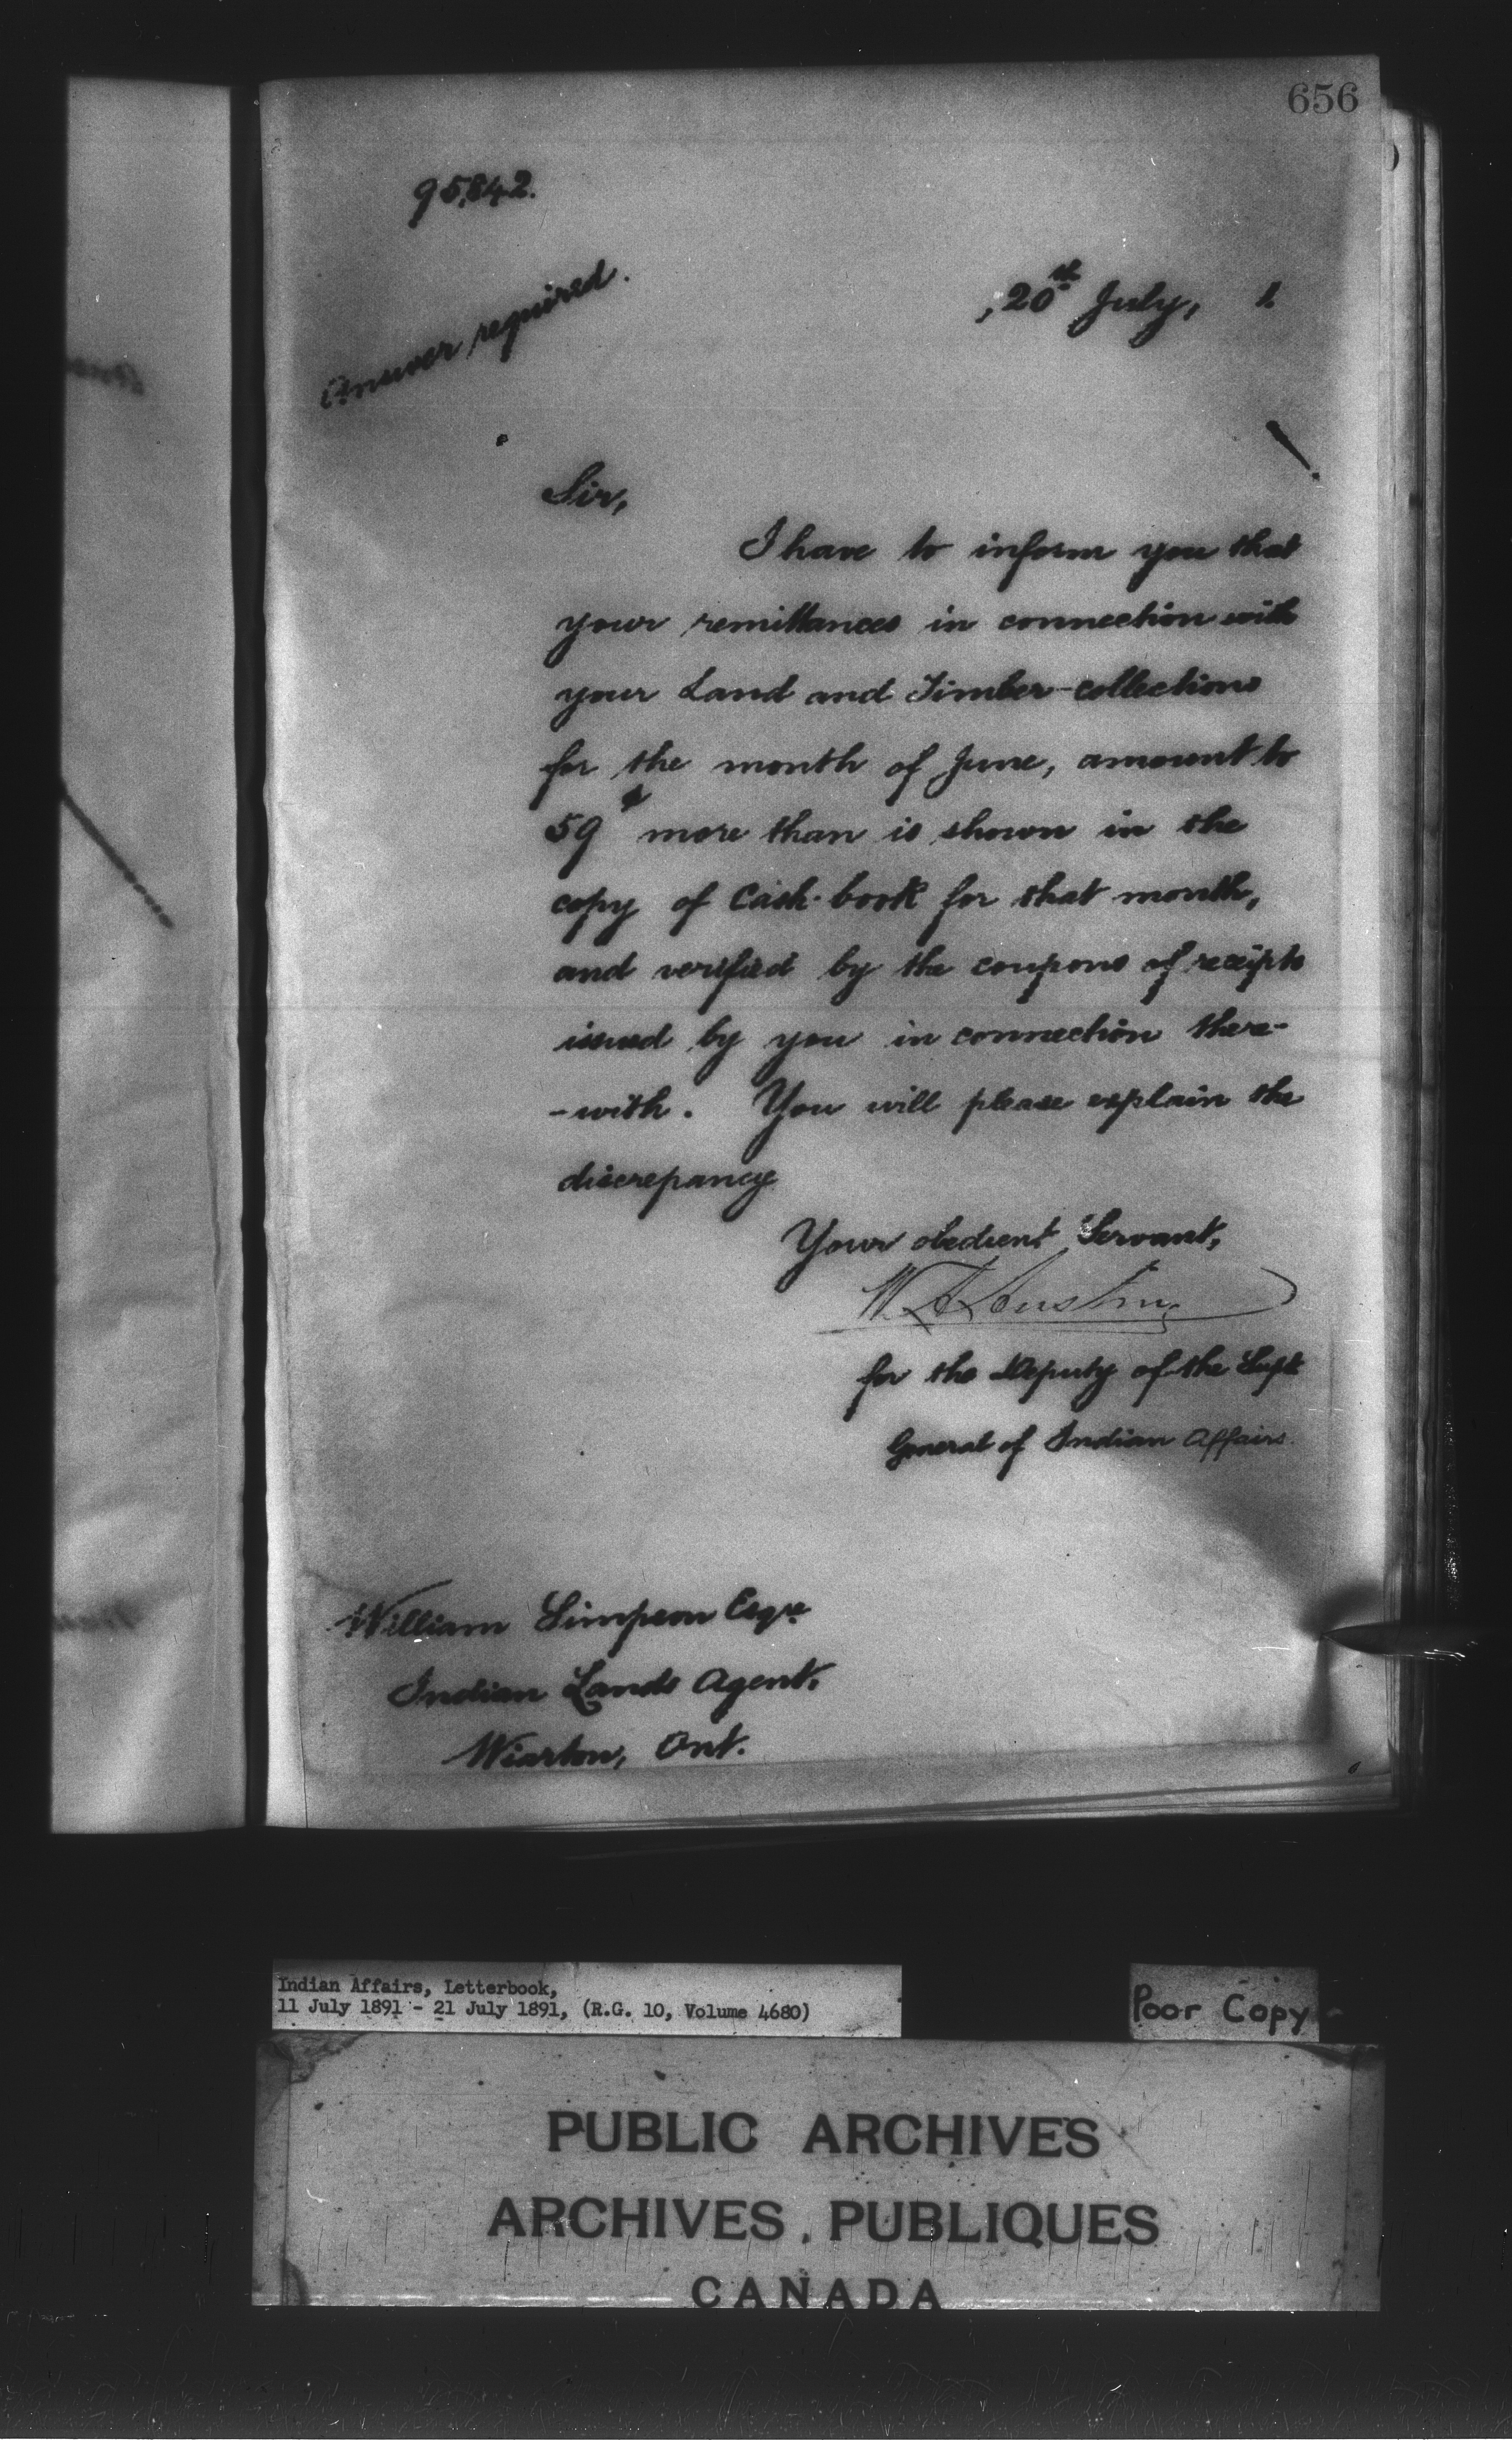 656
95,842.
Answer required.
, 20th July, 1.
Sir,
I have to inform you that
your remittances in connection with
your Land and Timber-collections
for the month of June, amount to
59¢ more than is shown in the
copy of Cash-book for that month,
and verified by the coupons of receipts
issued by you in connection there-
-with. You will please explain the
discrepancy
Your obedient Servant,
W. A. Austin
for the Deputy of the Supt
General of Indian Affairs.
William Simpson Esqre
Indian Lands Agent,
Wiarton, Ont.
Indian Affairs, Letterbook,
11 July 1891 - 21 July 1891, (R.G. 10, Volume 4680)
Poor Copy
PUBLIC ARCHIVES
ARCHIVES PUBLIQUES
CANADA